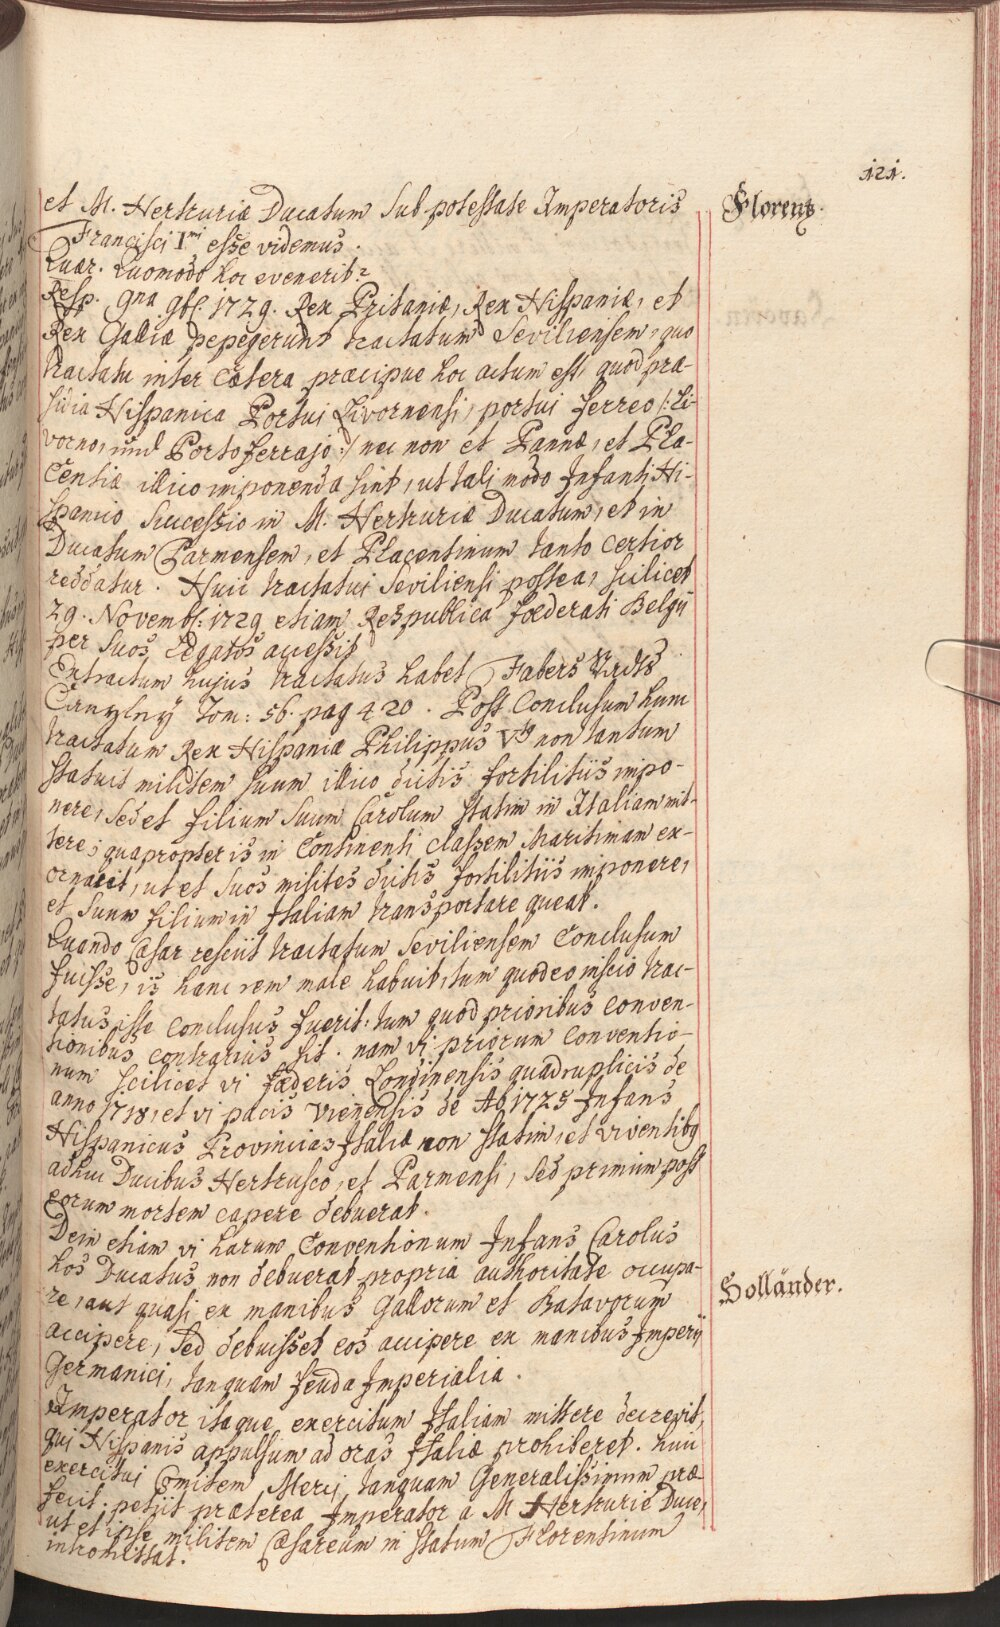 121.
Florenz.
et M. Hertruriæ Ducatum sub potestate Imperatoris
Francisci I<sup>mi</sup> esse videmus.
Quær. Quomodo hoc evenerit?
Resp. 9na 9bf. 1729. Rex Britaniæ, Rex Hispaniæ, et
Rex Galliæ pepegerunt tractatum Seviliensem, quo
tractatu inter Cætera præcipue hoc actum est, quod præ-
sidia Hispanica Portui Livornensi, portui ferreo /: Li-
vorno, und Porto ferrajo :/ nec non et Parmæ, et Pla-
Centiæ illico imponenda sint, ut tali modo Infanti Hi-
spanico Successio in M. Hertruriæ Ducatum, et in
Ducatum Parmensem, et Placentinum tanto certior
reddatur. Huic tractatui Seviliensi postea, scilicet
29. Novemb: 1729 etiam Respublica fœderati Belgij
per suos Legatos accessit
Extractum hujus tractatus habet Fabers Staats
Canzley Tom: 56. pag 420. Post Conclusum hunc
tractatum Rex Hispaniæ Philippus V<sup>tus</sup> non tantum
statuit militem suum illico dictis fortilitiis impo-
nere, sed et filium suum Carolum statim in Italiam mit-
tere; quapropter is in Continenti classem Maritimam ex-
ornavit, ut et suos milites dictis fortilitiis imponere,
et suum filium in Italiam transportare queat.
Quando Cæsar resciit tractatum Seviliensem Conclusum
fuisse, is hanc rem male habuit, tum quod eo inscio trac-
tatus iste Conclusus fuerit. tum quod prioribus conven-
tionibus contrarius sit. nam vi priorum Conventio-
num scilicet vi fœderis Londinensis quadruplicis de
anno 1718, et vi pacis Vieñensis de Aõ 1725 Infans
Hispanicus Provincias Italiæ non statim, et viventibq
adhuc Ducibus Hertrusco, et Parmensi, sed primum post
eorum mortem capere debuerat.
Dein etiam vi harum Conventionum Infans Carolus
hos Ducatus non debuerat propria authoritate occupa-
re, aut quasi ex manibus Gallorum et Batavorum
accipere, sed debuisset eos accipere ex manibus Imperij
Germanici, tanquam feuda Imperialia.
Holländer.
Imperator itaque exercitum Italiam mittere decrevit,
qui Hispanis appulsum ad oras Italiæ prohiberet. huic
exercitui Comitem Mercij tanquam Generalissimum præ-
fecit. petiit præterea Imperator a M Hertruriæ Duce,
ut et ipse militem Cæsareum in statum Florentinum
intromittat.